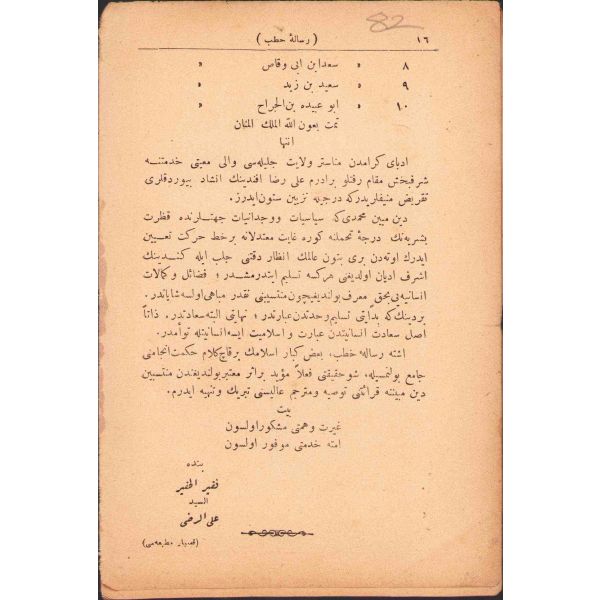 82
١٦ ( رسالهٔ خطب )
٨ » سعد ابن ابی وقاص »
٩ » سعید بن زید »
١٠ » ابو عبیده بن الجراح »
تمت بعون الله الملك المنان
انتها
ادبای کرامدن مناستر ولایت جلیله‌سی والی معیتی خدمتنه
شرفبخش مقام رفتلو برادرم علی رضا افندینك انشاد بیوردقلری
تقریض منیفلریدرکه درجیله تزیین ستون ایدرز.
دین مبین محمدی که سیاسیات ووجدانیات جهتلرنده فطرت
بشریه‌نك درجهٔ تحملنه کوره غایت معتدلانه برخط حرکت تعیین
ایدرك اوته‌دن بری بتون عالمك انظار دقتنی جلب ایله کندینك
اشرف ادیان اولدیغنی هرکسه تسلیم ایتدرمشدر؛ فضائل و کمالات
انسانیه‌یی بحق معرف بولندیغیچون منتسبینی نقدر مباهی اولسه شایاندر.
بردینك که بدایتی تسلیم وحدتدن عبارتدر؛ نهایتی البته سعادتدر. ذاتاً
اصل سعادت انسانیتدن عبارت و اسلامیت ایسه انسانیتله توأمدر.
اشته رسالهٔ خطب، بعض کبار اسلامك برقاچ کلام حکمت انجامنی
جامع بولنمسیله، شو حقیقتی فعلاً مؤید بر اثر معتبر بولندیغندن منتسبین
دین مبینه قرائتنی توصیه و مترجم عالیسنی تبریك و تنهیه ایدرم.
بیت
غیرت و همتی مشکور اولسون
امته خدمتی موفور اولسون
بنده
فقیر الحقیر
السید
علی الرضی
(قصبار مطبعه‌سی)